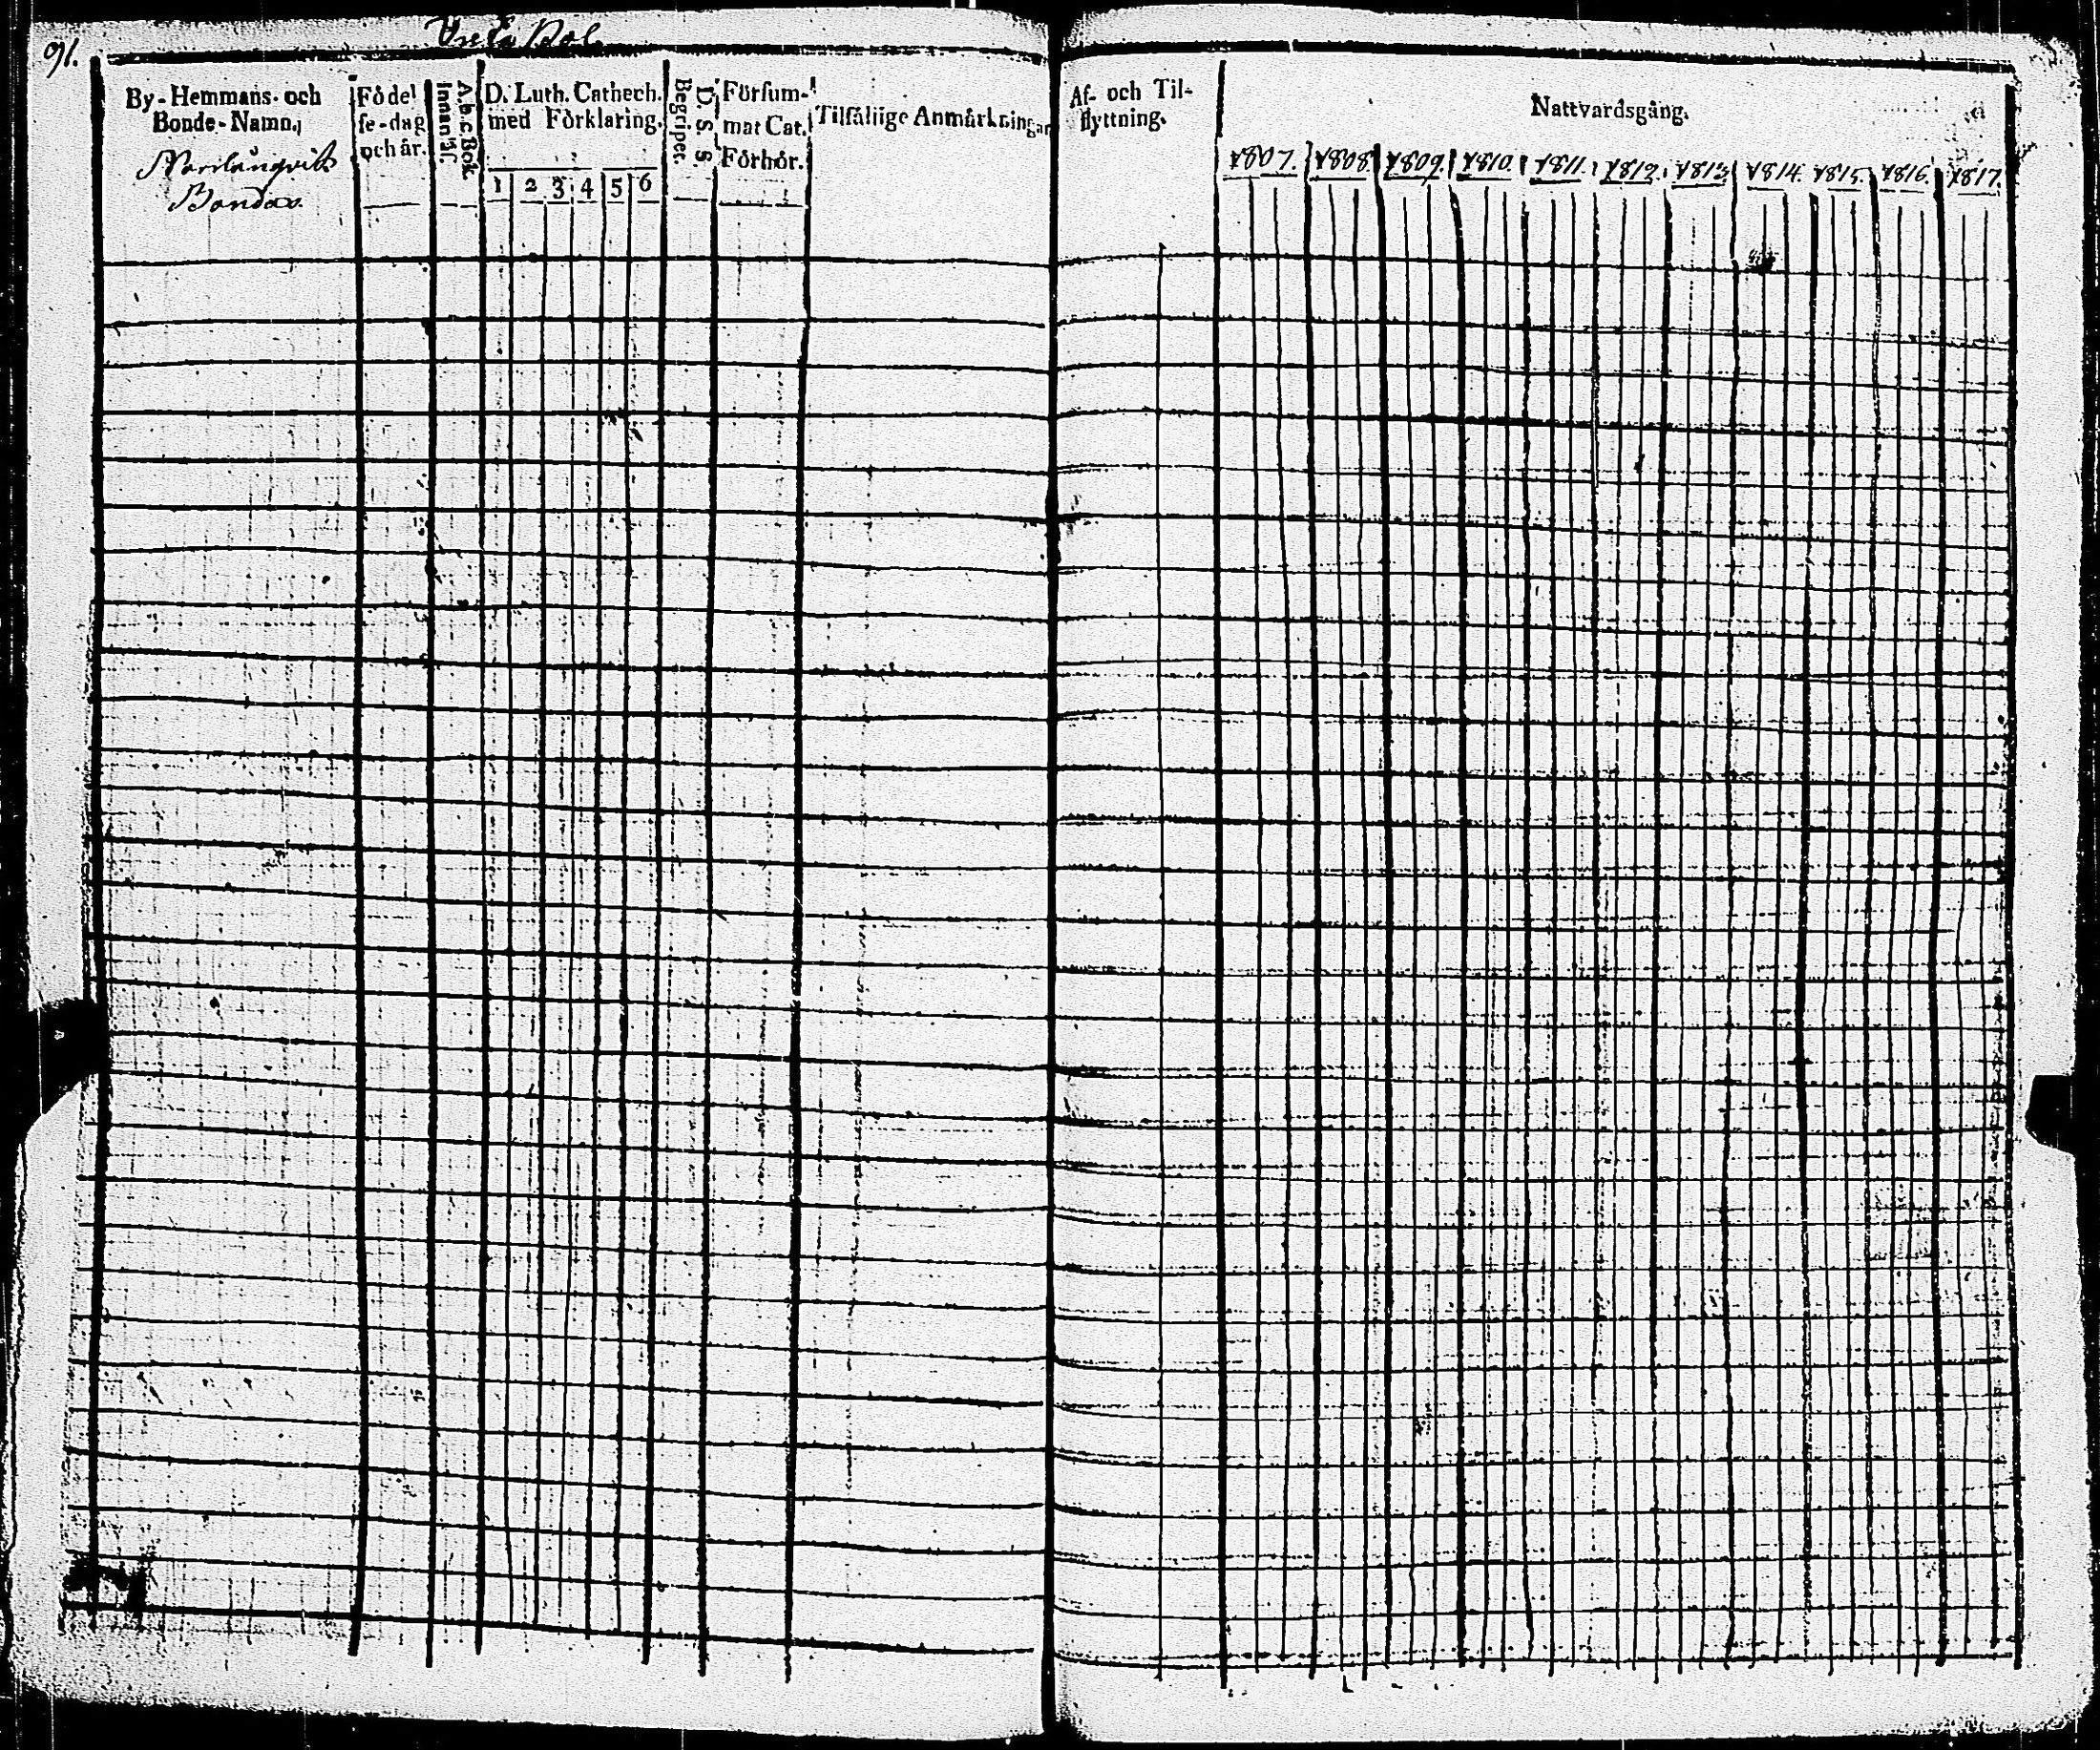 91.
By-Hemmans- och
Bonde-Namn.
Bondas
Födel
se-dag
och år.
A.b.c. Bok
Innanläs.
D. Luth. Cathech.
med Förklaring.
1 2 3 4 5 6
D. S. S.
Begriper.
Försum-
mat Cat.
Förhör.
Tilfällige Anmärkningar
Af- och Til-
flyttning.
Nattvardsgång.
1807. 1808. 1809. 1810. 1811. 1812. 1813. 1814. 1815. 1816. 1817.